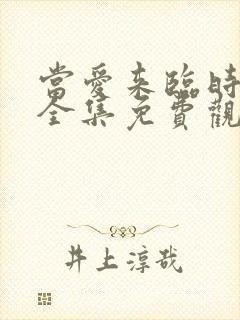 當愛来臨時
全集免費觀
井上淳哉